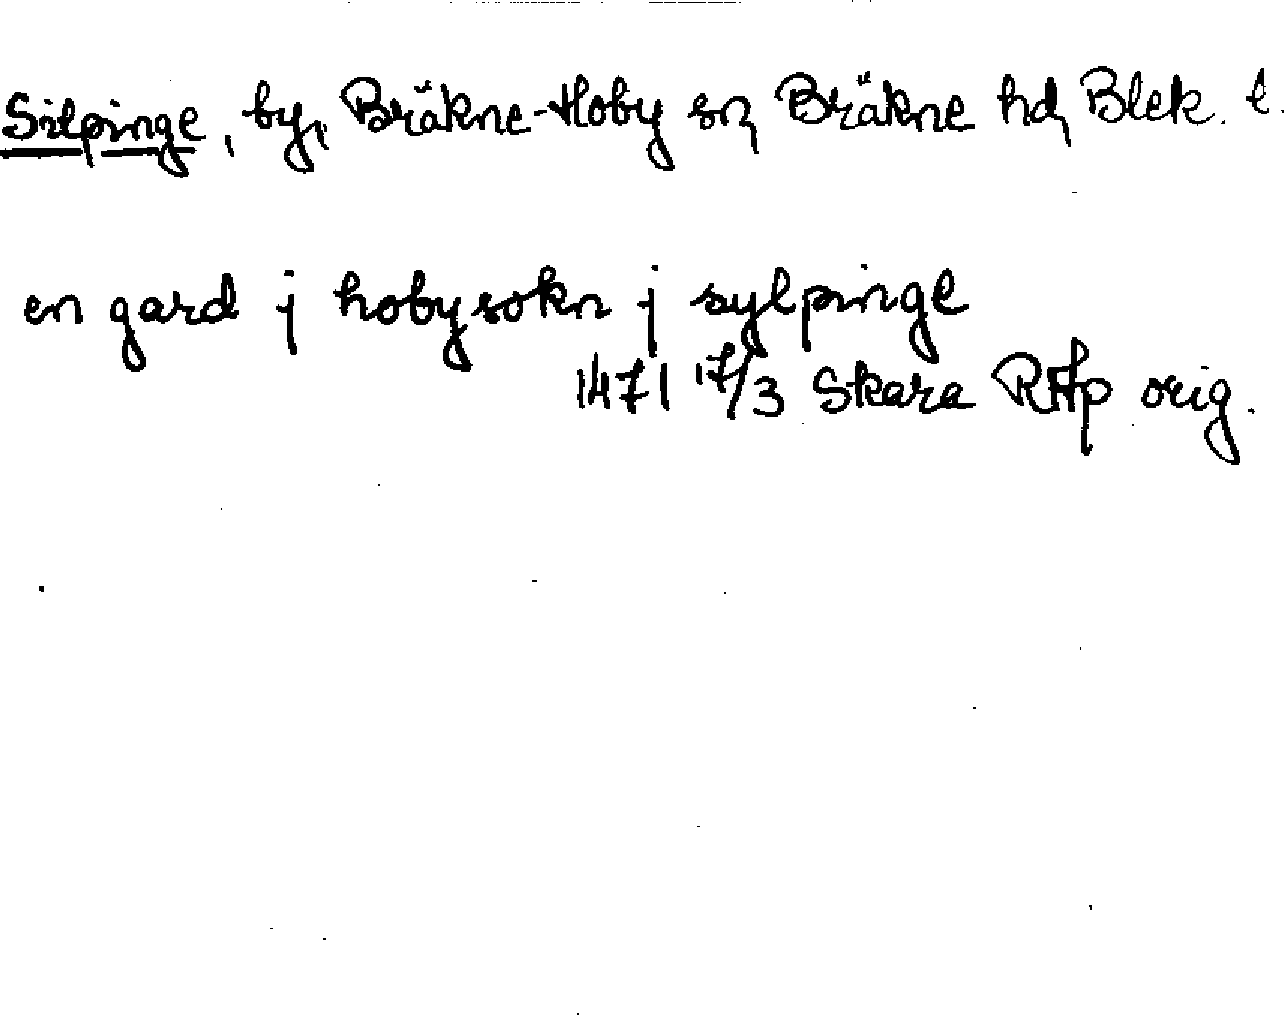 Silpinge, by, Bräkne-Hoby sn, Bräkne hd, Blek. l.
en gard j hobysokn j sylpinge
1471 17/3 Skara RAp orig.